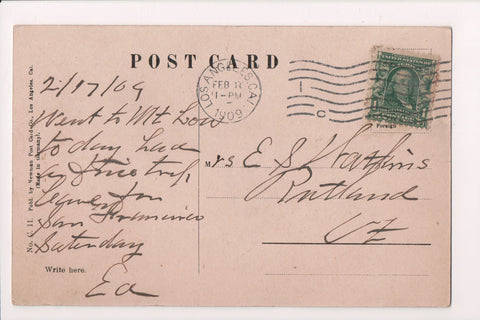 POST CARD
LOS ANGELES, CAL.
FEB 17
1-PM
1909
2/17/09
Went to Mt Low
to day had
a fine trip
leave for
San Francisco
Saturday
Ed
Mrs E S Watkins
Rutland
Vt
Write here.
No. C. 11. Publ. by Newman Post Card Co., Los Angeles, Cal.
(Made in Germany).
Foreign